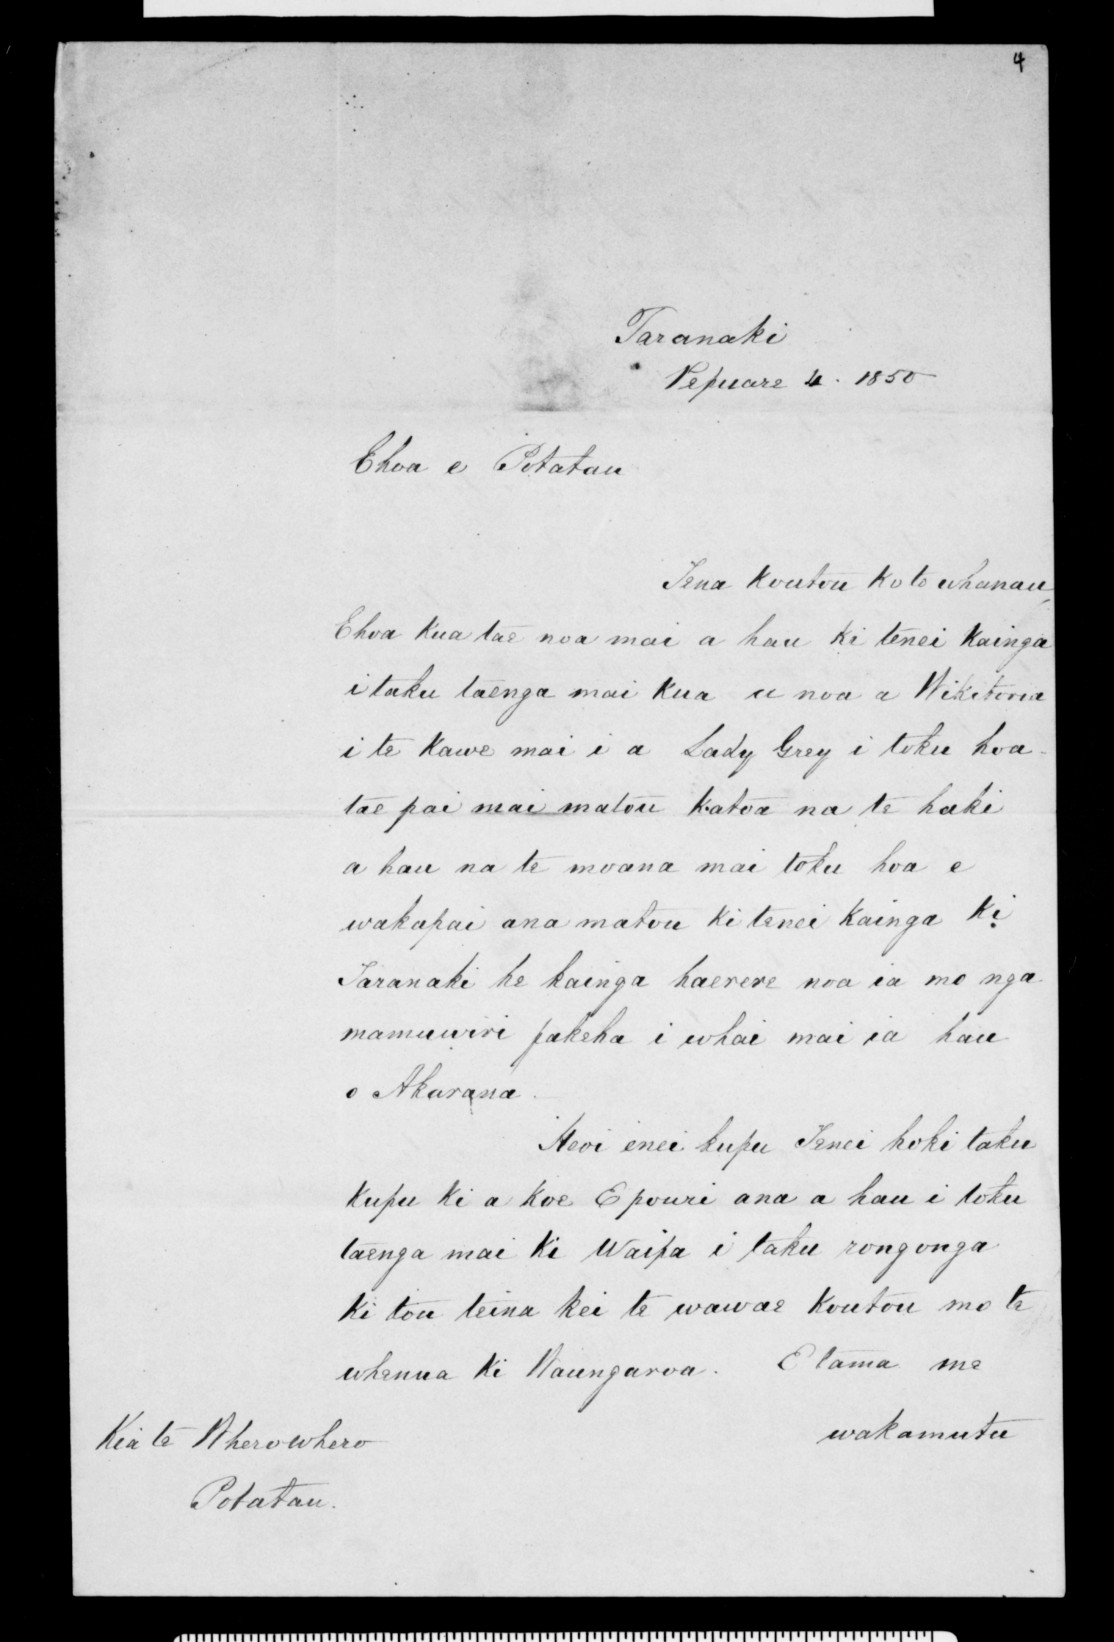 4
Taranaki
Pepuare 4. 1850
Ehoa e Potatau
Tena Koutou Ko to whanau,
Ehoa Kua tae noa mai a hau ki tenei Kainga
i taku taenga mai Kua u noa a Wikitoria
i te Kawe mai i a Lady Grey i toku hoa
tae pai mai matou Katoa na te haki
a hau na te moana mai toku hoa e
wakapai ana matou Ki tenei Kainga Ki
Taranaki he kainga haerere noa ia mo nga
manuwiri pakeha i whai mai ia hau
o Akarana.
Heoi enei kupu Tenei hoki taku
Kupu Ki a Koe E pouri ana a hau i toku
taenga mai Ki Waipa i taku rongonga
Ki tou teina kei te wawae Koutou mo te
whenua Ki
E tama me
wakamutu
Kia te Wherowhero
Potatau.